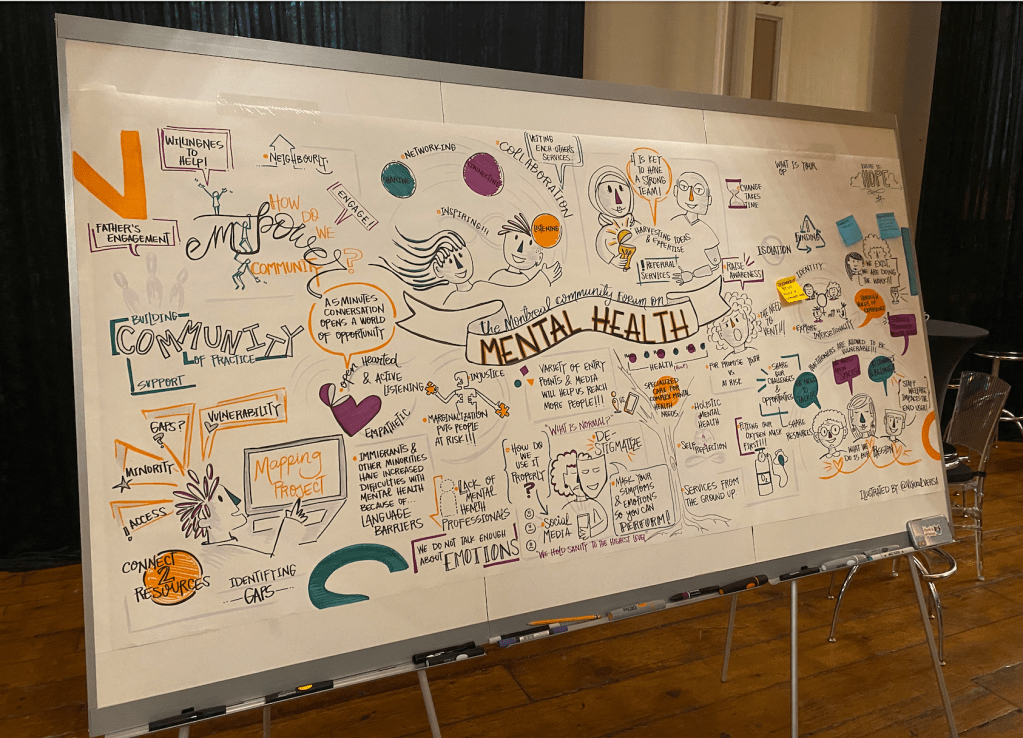 WILLINGNES
TO
HELP!
NEIGHBOURIT
ENGAGE!
FATHER'S
ENGAGEMENT
HOW
DO
WE
empower
COMMUNITY
?
A 5 MINUTES
CONVERSATION
OPENS A WORLD
OF OPPORTUNITY
BUILDING
COMMUNITY
OF PRACTICE
SUPPORT
NETWORKING
SHARING
CONNECTING
COLLABORATION
VISITING
EACH OTHER'S
SERVICES.
INSPIRING!!!
LISTENING
IT IS KEY
TO HAVE
A STRONG
TEAM!
HARVESTING IDEAS
& EXPERTISE
REFERRAL
SERVICES
the Montreal Community Forum on
MENTAL HEALTH
WHAT IS YOUR
CHANGE
TAKES
TIME
HOPE
ISOLATION
FUNDING
RAISE
AWARENESS
IDENTITY
WE EXIST,
WE ARE DOING
THE WORK!!!
EXPLORE
INTERSECTIONALITY
THE NEED
TO
VENT!!!
PRACTITIONERS ARE ALLOWED TO BE
VULNERABLE!!!
open
Hearted
& ACTIVE
LISTENING
EMPATHETIC
INJUSTICE
MARGINALIZATION
PUTS PEOPLE
AT RISK!!!
VARIETY OF ENTRY
POINTS & MEDIA
WILL HELP US REACH
MORE PEOPLE!!!
HEALTH
SPECIALIZED
CARE FOR
COMPLEX MENTAL
HEALTH
NEEDS
FOR PROMISE YOUTH
VS
AT RISK
SHARE
OUR
CHALLENGES
&
OPPORTUNITIES
HOLISTIC
MENTAL
HEALTH
SELF REFLECTION
PUTTING OUR
OXYGEN MASK
FIRST!!!
SHARE
RESOURCES
O2
WE NEED
TO
TALK!!!
STAFF WELFARE
IMPACTS THE
END USER!
WHAT WE
DO IS OUR PASSION
SERVICES FROM
THE GROUND UP
VULNERABILITY
GAPS?
MINORITY
ACCESS
Mapping
Project
IMMIGRANTS &
OTHER MINORITIES
HAVE INCREASED
DIFFICULTIES WITH
MENTAL HEALTH
BECAUSE OF...
LANGUAGE
BARRIERS
LACK OF
MENTAL
HEALTH
PROFESSIONALS
WE DO NOT TALK ENOUGH
ABOUT EMOTIONS
WHAT IS NORMAL?
HOW DO
WE
USE IT
PROPERLY
?
1
2
3
SOCIAL
MEDIA
DE-
STIGMATIZE
MASK YOUR
SYMPTOMS
& EMOTIONS
SO YOU CAN
PERFORM!
WE HOLD SANITY TO THE HIGHEST LEVEL
CONNECT
2
RESOURCES
IDENTIFTING
GAPS
ILLUSTRATED BY